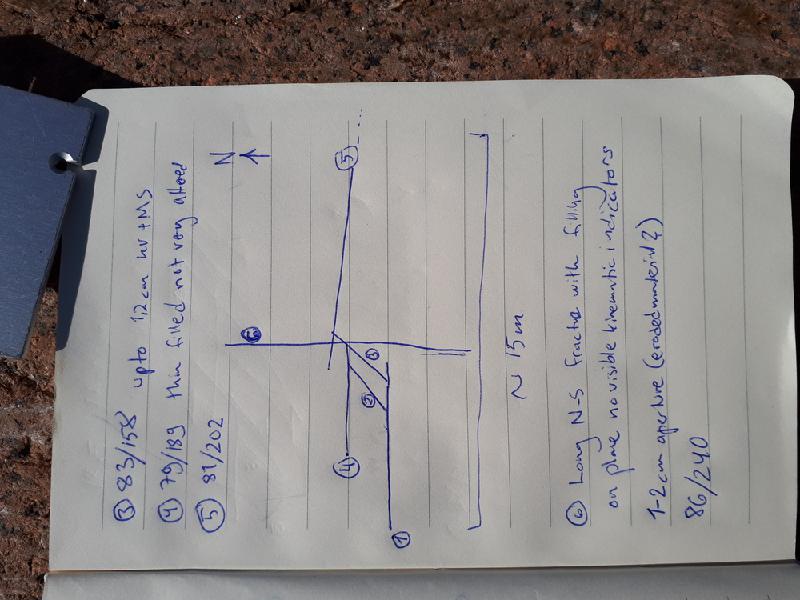 ③ 83/158 upto 1,2 cm
④ 79/189 thin filled not very altered
⑤ 81/202
N
⑥
⑤
③
②
④
①
~ 15m
⑥ Long N-S fracture with filling
on plane no visible kinematic indicators
1-2 cm aperture (eroded material?)
86/240